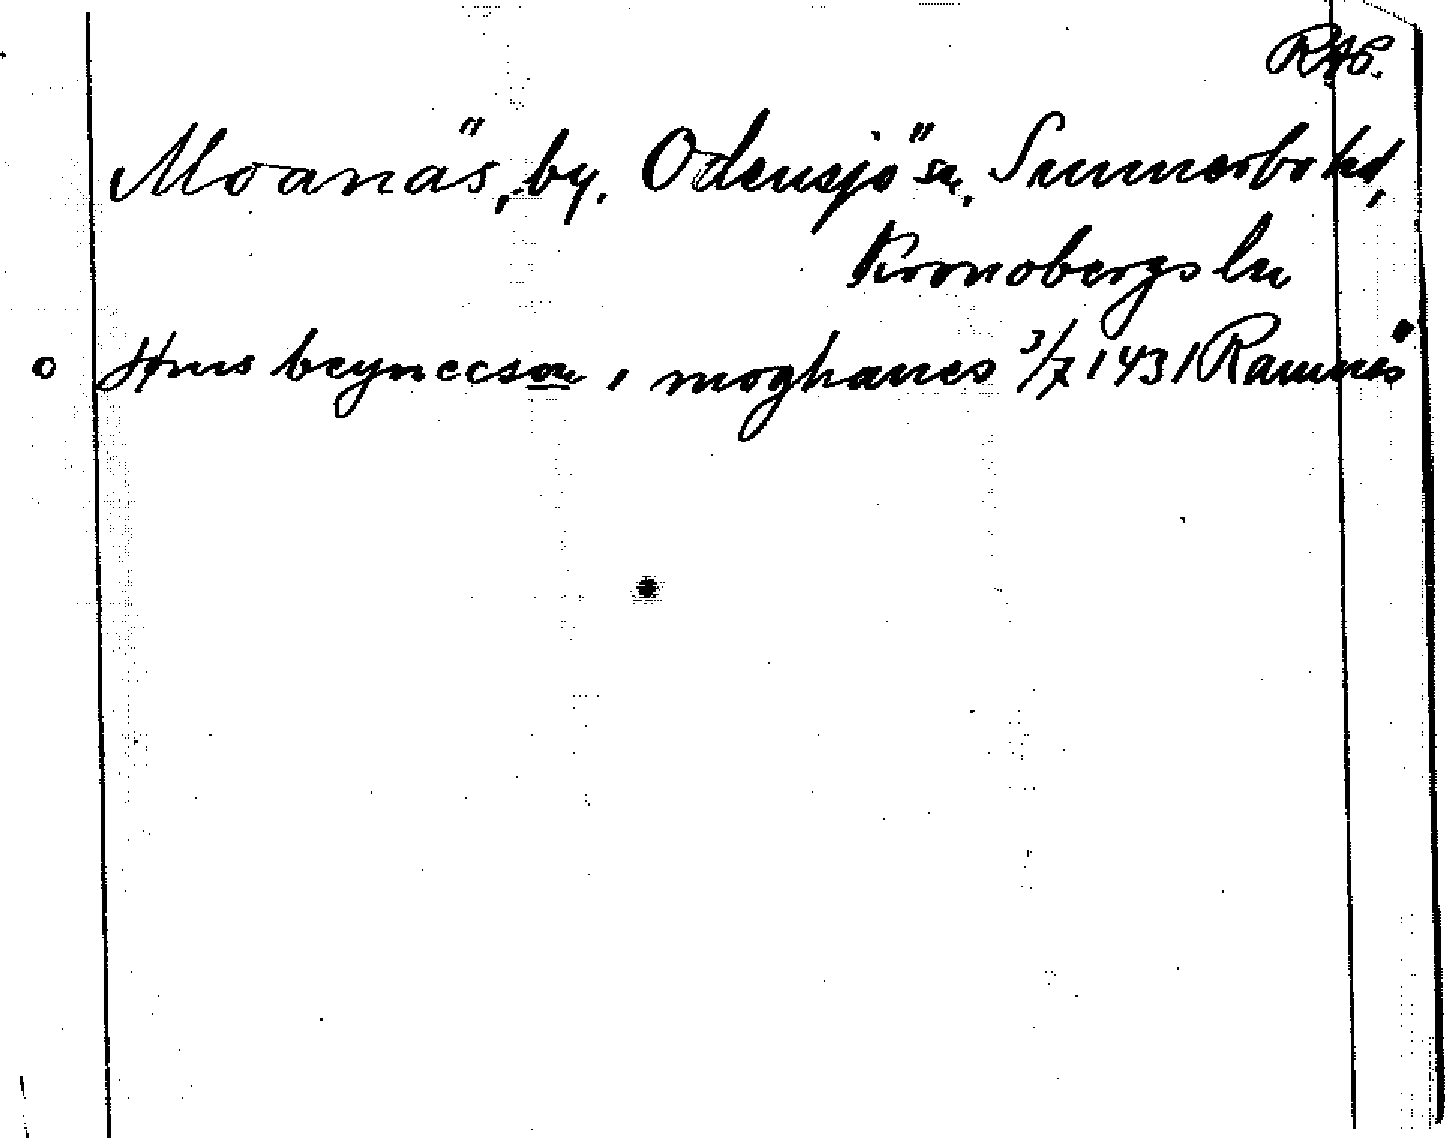 RAP.
Moanäs, by. Odensjö sn. Sunnerbo hd,
Kronobergs ln
beyneccson i moghanes 3/7 1431 Ramnäs